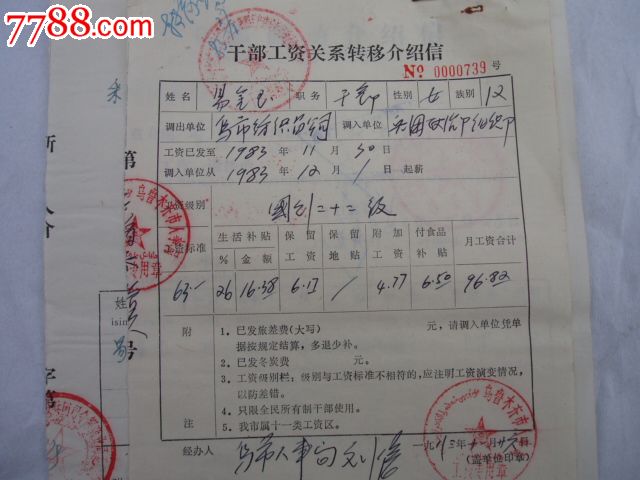 7788.com
干部工资关系转移介绍信
No 0000739 号
姓名 职务 干部 性别 女 族别 汉
调出单位 乌市纺织品公司 调入单位 兵团政治部组织部
工资已发至 1983 年 11 月 30 日
调入单位从 1983 年 12 月 1 日起薪
工资级别 國行二十二级
工资标准 生活补贴 % 金额 保留工资 保留地贴 附加工资 付食品补贴 月工资合计
63.- 26 16.38 6.17 / 4.77 6.50 96.82
附注
1．已发旅差费(大写) 元，请调入单位凭单
据按规定结算，多退少补。
2．已发冬炭费 元。
3．工资级别栏：级别与工资标准不相符的，应注明工资演变情况，
以防差错。
4．只限全民所有制干部使用。
5．我市属十一类工资区。
经办人 乌市人事局 一九八三年十一月廿六日
(盖单位印章)
乌鲁木齐市人事局
工资专用章
乌鲁木齐市
专用章
第
号
姓